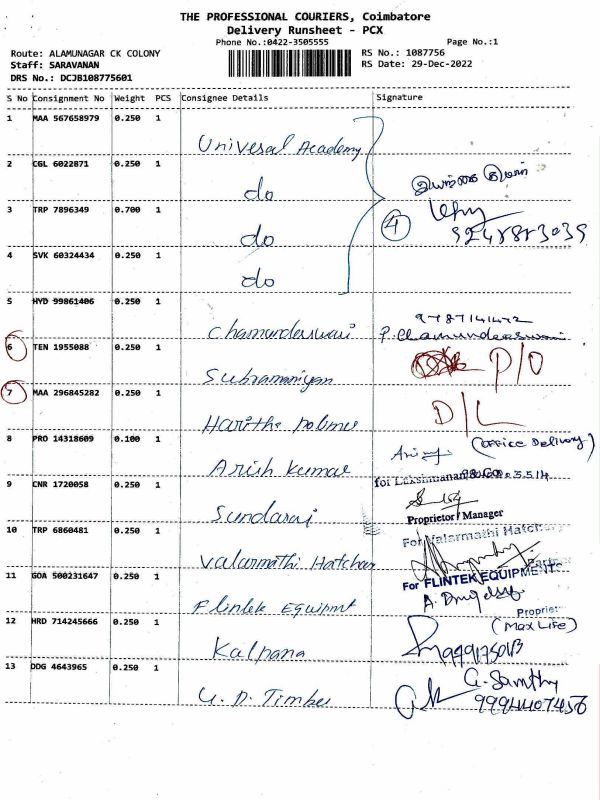 THE PROFESSIONAL COURIERS, Coimbatore
Delivery Runsheet - PCX
Phone No.:0422-3505555 Page No.:1
Route: ALAMUNAGAR CK COLONY RS No.: 1087756
Staff: SARAVANAN RS Date: 29-Dec-2022
DRS No.: DCJB108775601
S No Consignment No Weight PCS Consignee Details Signature
1 MAA 567658979 0.250 1
Universal Academy
2 CGL 6022871 0.250 1
do
3 TRP 7896349 0.700 1
do 4
4 SVK 60324434 0.250 1
do
5 HYD 99861406 0.250 1
Chamundeswari P. Chamundeeswari
6 TEN 1955088 0.250 1
Subramaniyan P/O
7 MAA 296845282 0.250 1
Haritha Polimes D/L
8 PRO 14318609 0.100 1 (Office Delivery)
Arish Kumar
9 CNR 1720058 0.250 1 for Lakshmanan & Co
Sundaraj Proprietor / Manager
10 TRP 6860481 0.250 1 For Valarmathi Hatchery
Valarmathi Hatchari Partner
11 GOA 500231647 0.250 1 For FLINTEK EQUIPMENTS
Flintek Equipmt Propriet
12 HRD 714245666 0.250 1 (Max LIFE)
Kalpana
13 DDG 4643965 0.250 1
U.D. Timber